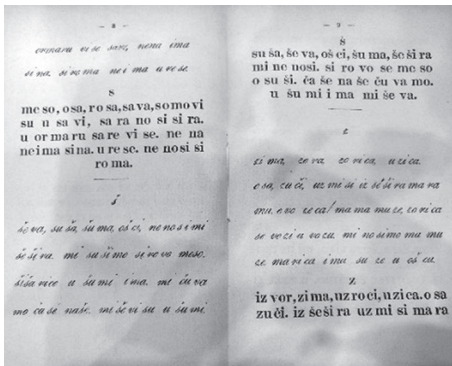 – 8 –
ormaru vise sara, nena ima
sina. siroma ne ima u ve se.
s
me so, o sa, ro sa, sa va, so mo vi
su u sa vi, sa ra no si si ra.
u or ma ru sa re vi se. ne na
ne ima si na. u re se. ne no si si
ro ma.
š
še va, su ša, šu ma, oš ci, ne no si mi
še ši ra. mi su ši mo si ro vo me so.
ši ša vice u šu mi ima. mi ču va
mo ča še naše. mi še vi su u šu mi.
– 9 –
š
su ša, še va, oš ci, šu ma, še ši ra
mi ne no si. si ro vo se me so
o su ši. ča še na še ču va mo.
u šu mi i ma mi še va.
z
zi ma, ze va zo ri ca, u zi ca.
o sa, zu či, uz mi si iz še ši ra ma ra
mu. evo ze ca / ma ma mu ze, zo ri ca
se vo zi u vo zu. mi no si mo ma mu
ze ma ri ca i ma su ze u o ču.
z
iz vor, zi ma, uz ro ci, u zi ca. o sa
zu či. iz še ši ra uz mi si ma ra